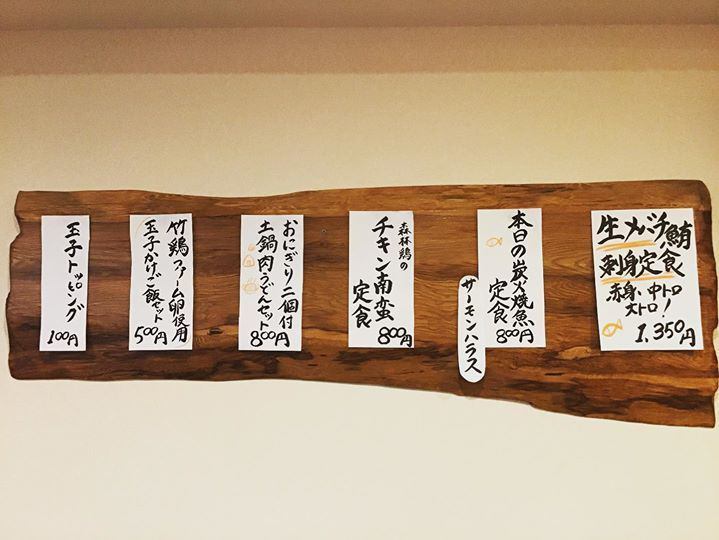 生メバチ鮪
刺身定食
赤身、中トロ
大トロ！
1,350円
本日の炭火焼魚
定食
800円
サーモンハラス
森林鶏の
チキン南蛮
定食
800円
おにぎり二個付
土鍋肉うどんセット
800円
竹鶏ファーム卵使用
玉子かけご飯セット
500円
玉子トッピング
100円